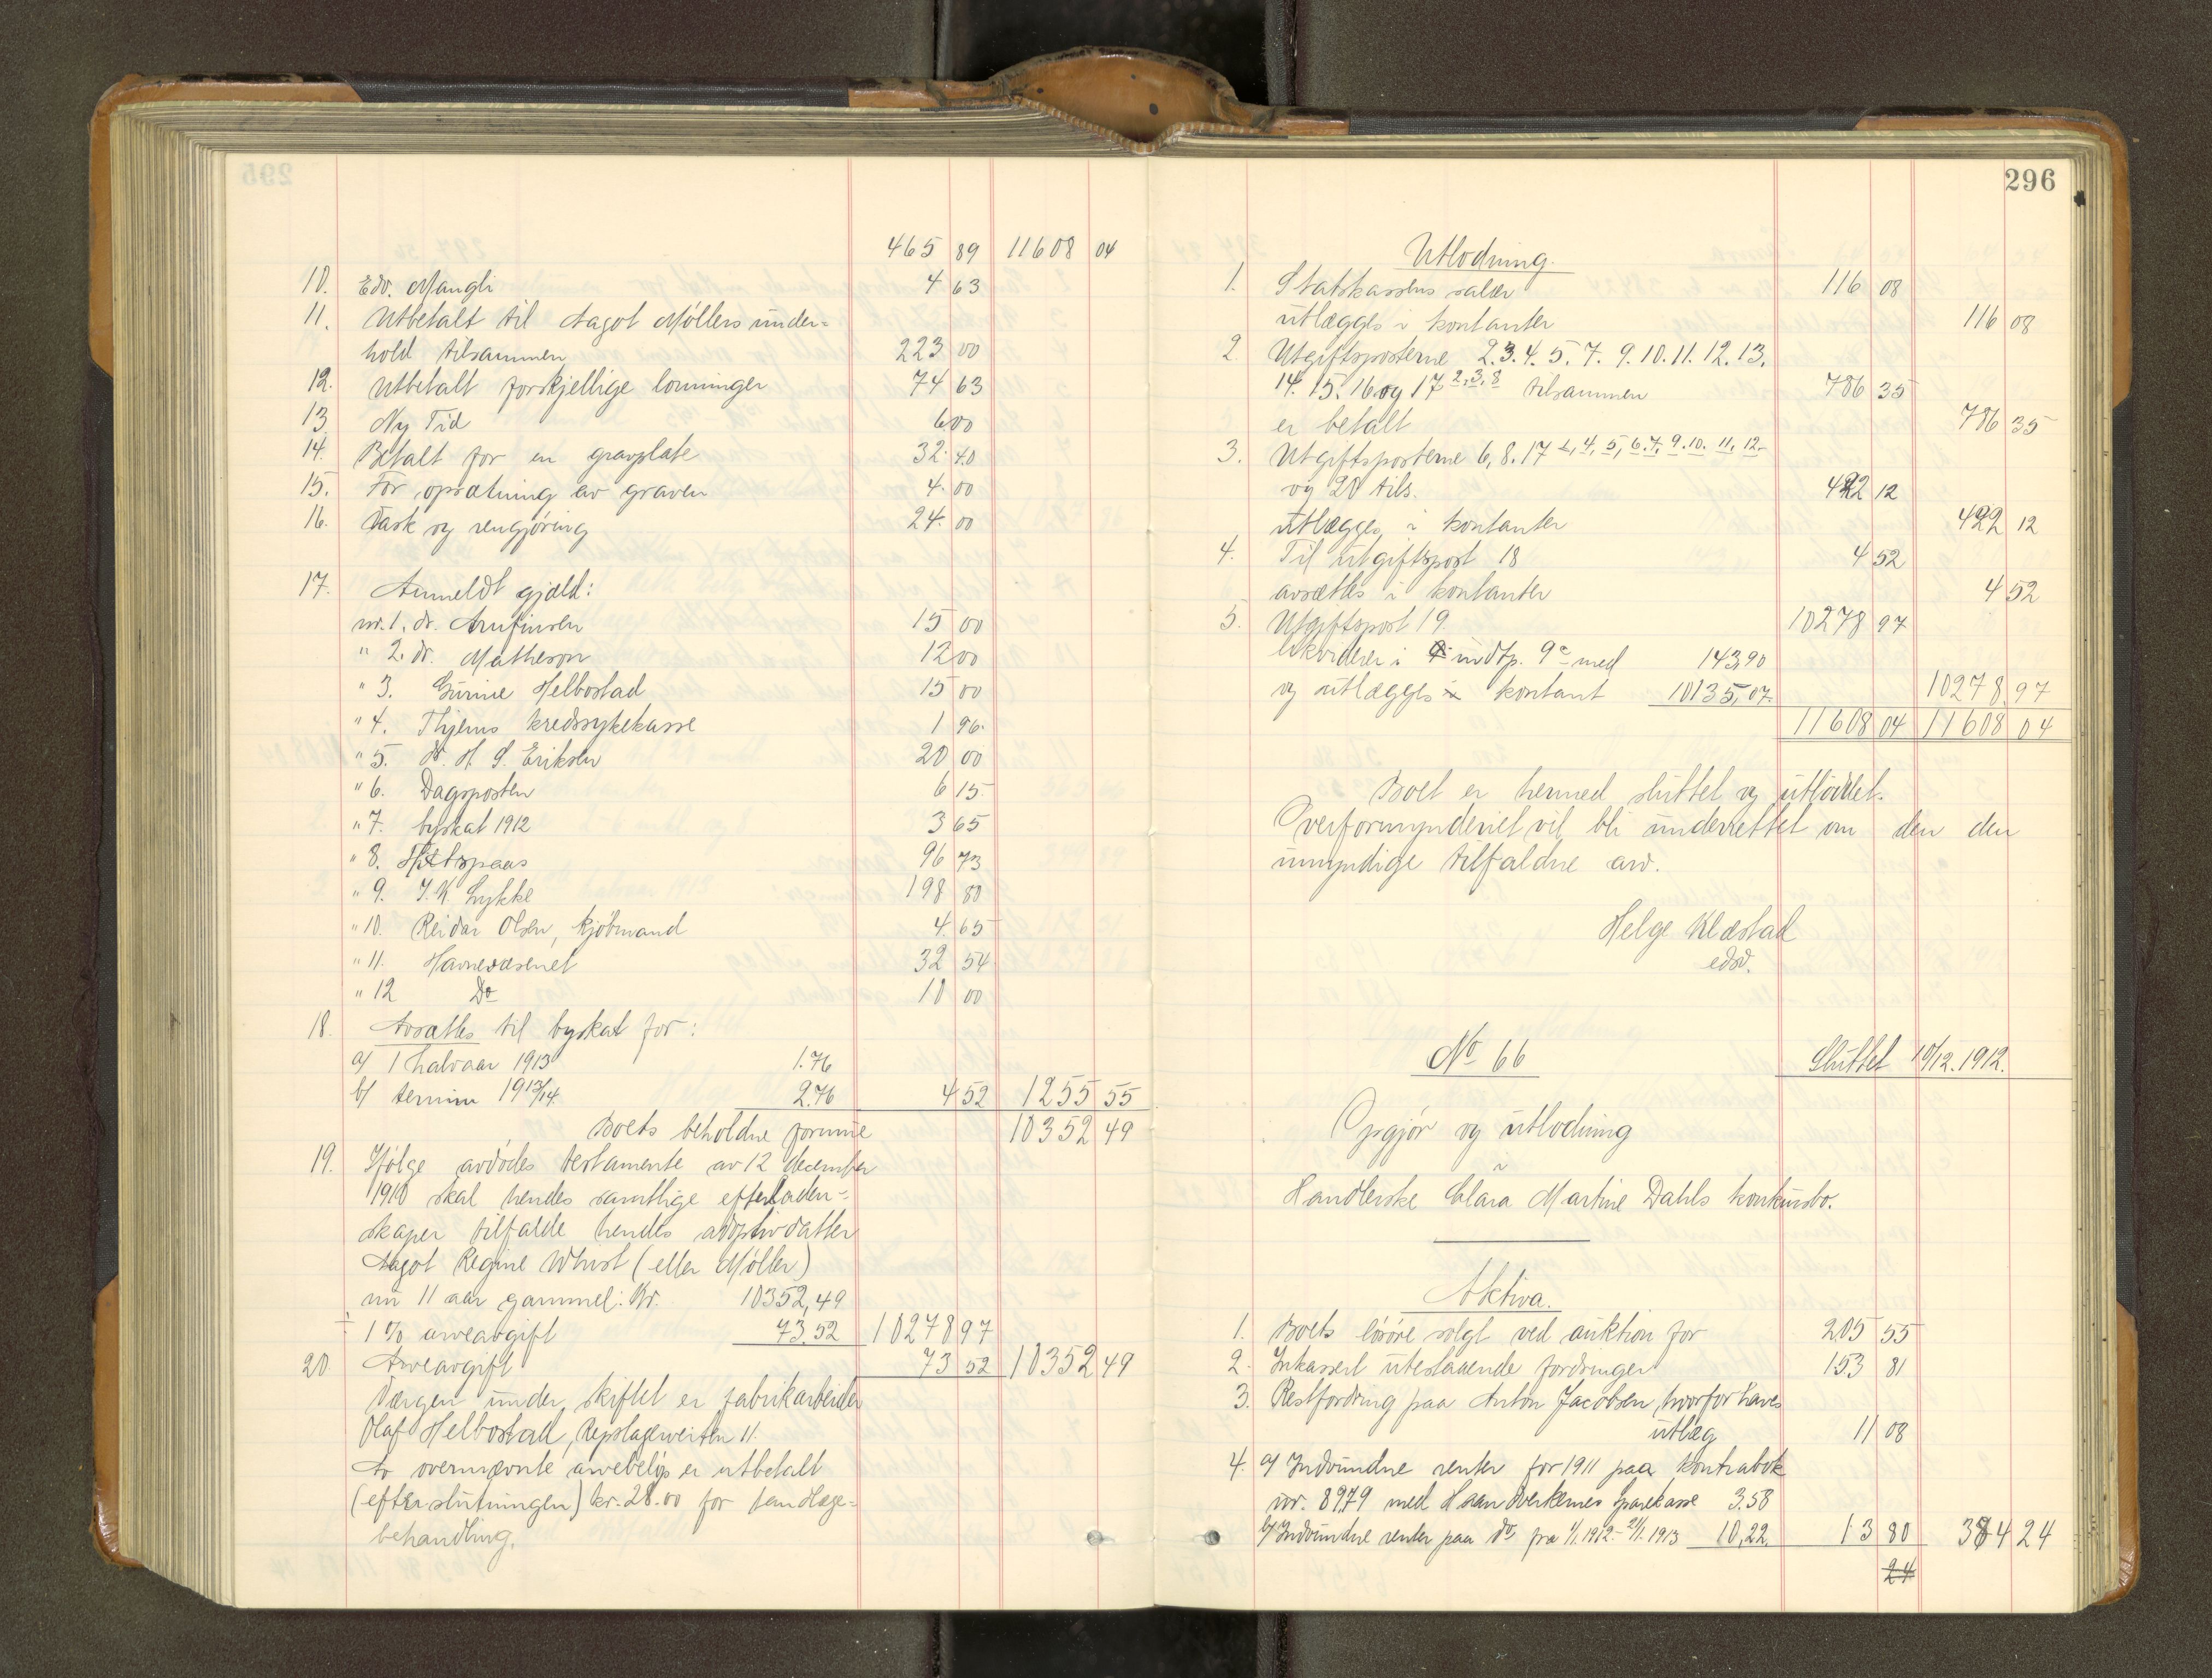 465 89 11608 04
10. Edv. Mangli 4 63
11. Utbetalt til Aagot Møllers under=
hold tilsammen 223 00
12. Utbetalt forskjellige lønninger 74 63
13. Ny Tid 6 00
14. Betalt for en gravplate 32 40
15. For opsætning av graven 4 00
16. Vask og rengjøring 24 00
17. Anmeldt gjæld:
nr. 1. dr. Arnfinsen 15 00
" 2. dr. Matheson 12 00
" 3. Gurine Helbostad 15 00
" 4. Thjems kredssykekasse 1 96
" 5. dr. H. S. Eriksen 20 00
" 6. Dagsposten 6 15
" 7. byskat 1912 3 65
" 8. 96 73
" 9. I. K. Lykke 198 80
" 10. Reidar Olsen, kjøbmand 4 65
" 11. Havnevæsenet 32 54
" 12 Do 10 00
18. Avsættes til byskat for:
a/ 1 halvaar 1913 1.76
b/ termin 1913/14 2.76 4 52 1255 55
Boets beholdne formue 10352 49
19. Ifølge avdødes testamente av 12 december
1910 skal hendes samtlige efterladen=
skaper tilfalde hendes adoptivdatter
Aagot Regine Whist (eller Møller)
nu 11 aar gammel: Kr. 10352,49
÷ 1 % arveavgift 73.52 10278 97
20 Arveavgift 73 52 10352 49
Værgen under skiftet er fabrikarbeider
Olaf Helbostad, Repslagerveiten 11.
Av overnævnte arvebeløp er utbetalt
(efter slutningen) kr. 28.00 for tandlæge=
behandling.
296
Utlodning.
1. Statskassens salær 116 08
utlægges i kontanter 116 08
2. Utgiftsposterne 2.3.4.5.7.9.10.11.12.13.
14. 15. 16 og 17 2, 3, 8 tilsammen 786 35
er betalt 786 35
3. Utgiftsposterne 6, 8. 17 1, 4, 5, 6. 7, 9. 10. 11, 12.
og 20 tils. 422 12
utlægges i kontanter 422 12
4. Til utgiftspost 18 4 52
avsættes i kontanter 4 52
5. Utgiftspost 19. 10278 97
likviderer i indtp. 9c med 143,90
og utlægges kontant 10135,07. 10278 97
11608 04 11608 04
Boet er hermed sluttet og utloddet.
Overformynderiet vil bli underrettet om den den
umyndige tilfaldne arv.
Helge Klæstad
edsv.
No 66 Sluttet 10/12. 1912.
Opgjør og utlodning
i
Handlerske Clara Martine Dahls konkursbo.
Aktiva.
1. Boets løsøre solgt ved auktion for 205 55
2. Inkassert utestaaende fordringer 153 81
3. Restfordring paa Anton Jacobsen, hvorfor haves
utlæg 11 08
4. a/ Indvundne renter for 1911 paa Kontrabok
nr. 8979 med Haandverkernes Sparekasse 3.58
b/ Indvundne renter paa do fra 1/1. 1912 - 21/1. 1913 10,22. 13 80 384 24
24